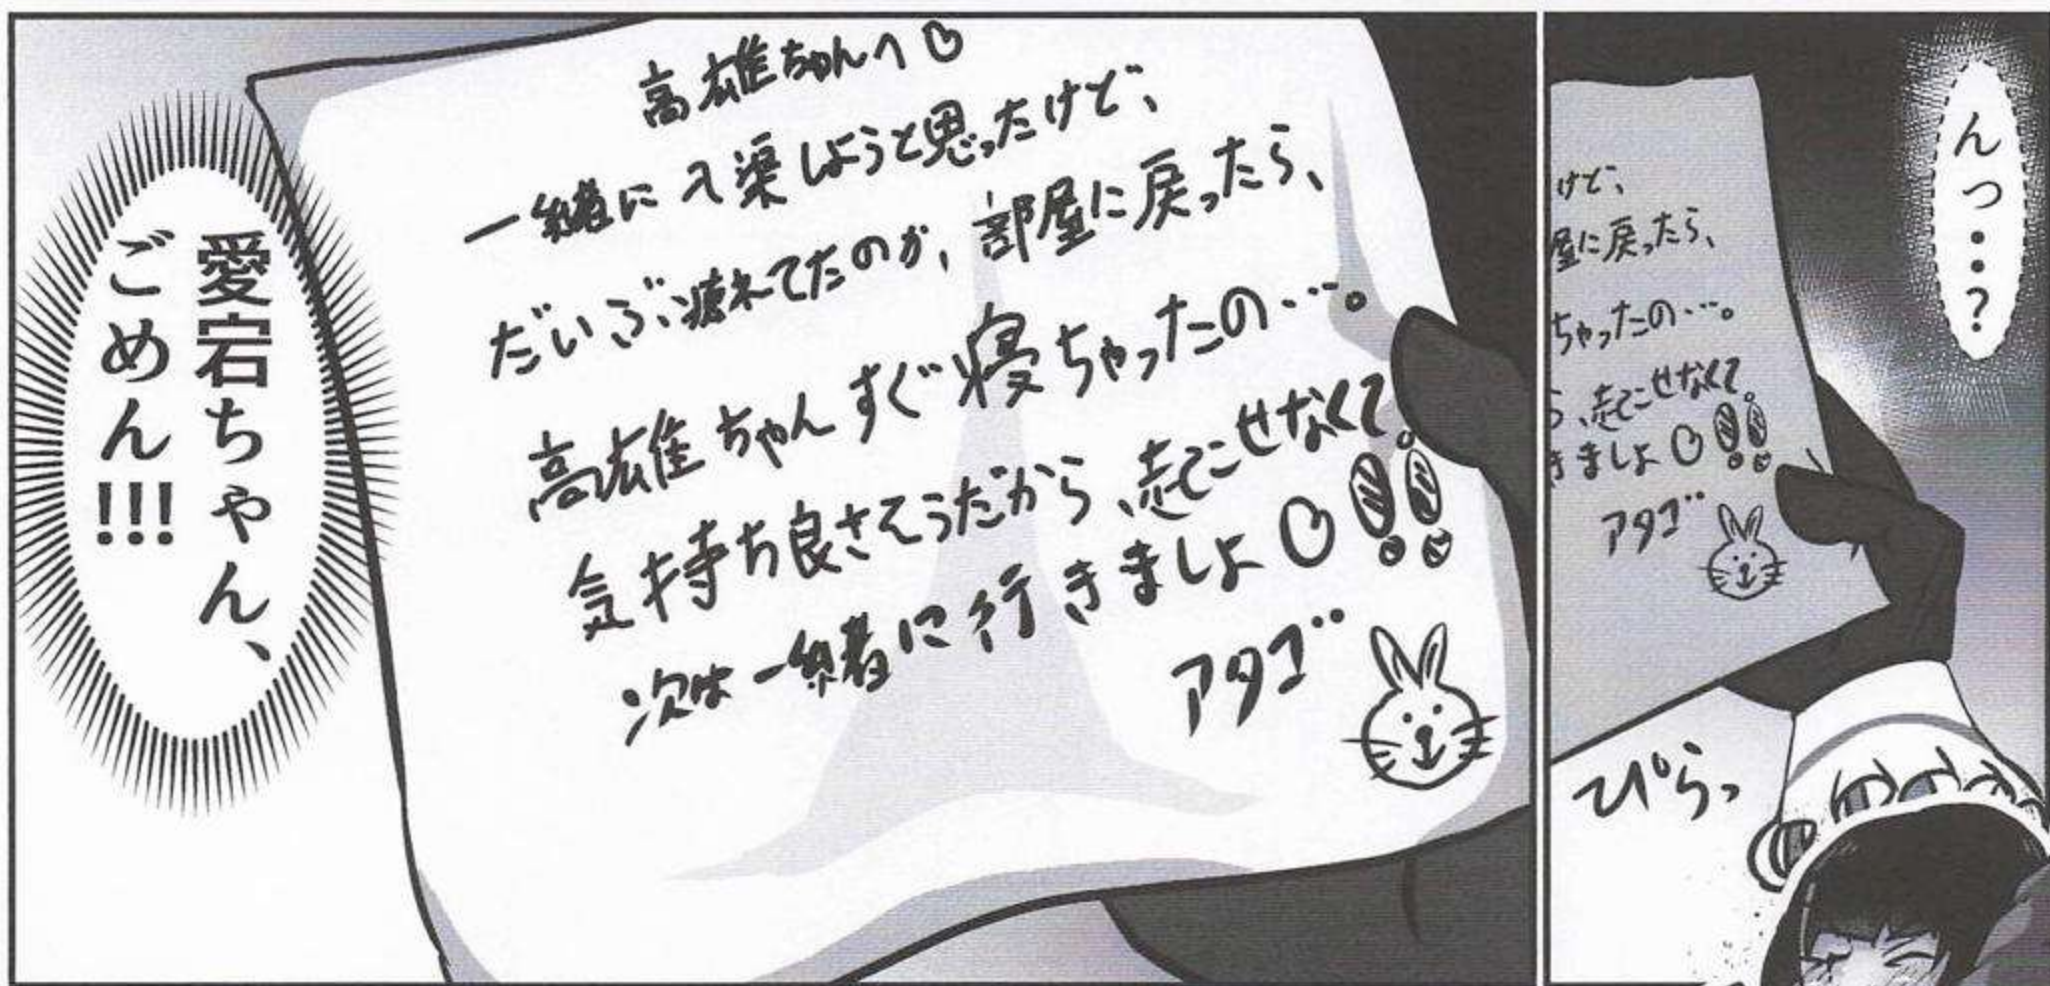 んっ…?
けど、
屋に戻ったら、
ちゃったの…。
ら、起こせなくて。
きましょ♡!!
アタゴ
ぴらっ
高雄ちゃんへ♡
一緒に入渠しようと思ったけど、
だいぶ疲れてたのか、部屋に戻ったら、
高雄ちゃんすぐ寝ちゃったの…。
気持ち良さそうだから、起こせなくて。
次は一緒に行きましょ♡!!
アタゴ
愛宕ちゃん、
ごめん!!!